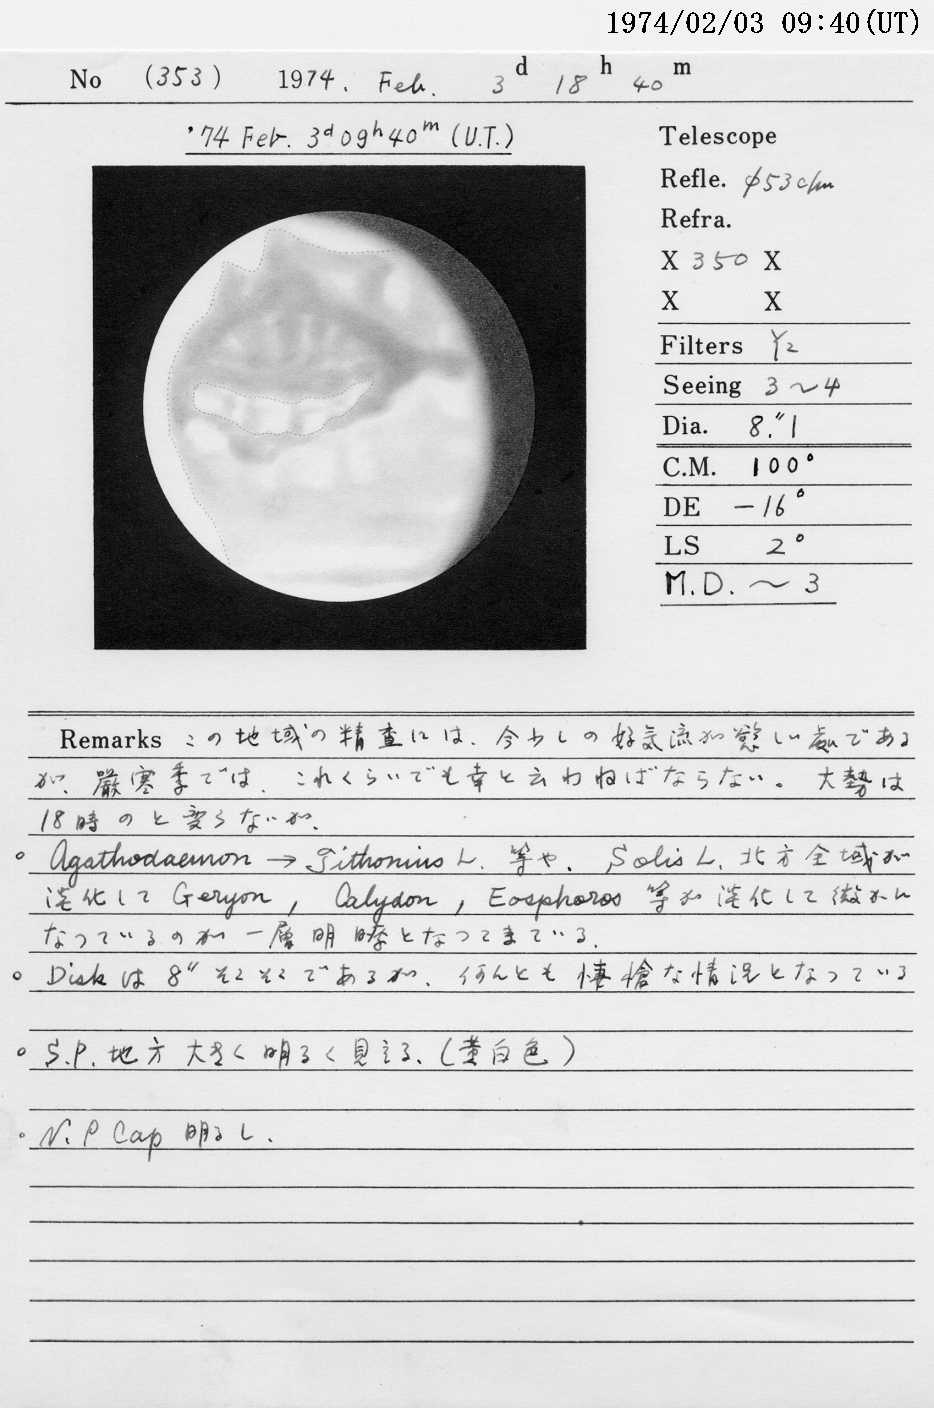 1974/02/03 09:40(UT)
No (353) 1974. Feb. 3d 18h 40m
'74 Feb. 3d 09h 40m (U.T.)
Telescope
Refle. φ53c/m
Refra.
X 350 X
X X
Filters Y2
Seeing 3～4
Dia. 8."1
C.M. 100°
DE −16°
LS 2°
M.D. ～3
Remarks この地域の精査には、今少しの好気流が慾しい処である
が、厳寒季では、これくらいでも幸と云わねばならない。大勢は
18時のと変らないが、
○ Agathodaemon → Tithonius L. 等や、Solis L. 北方全域が
淡化して Geryon, Calydon, Eosphoros 等が淡化して微かに
なっているのが一層明瞭となってきている.
○ Diskは8"そこそこであるが、何んとも悽愴な情況となっている
○ S.P.地方大きく明るく見える、(黄白色)
○ N.P Cap 明るし.